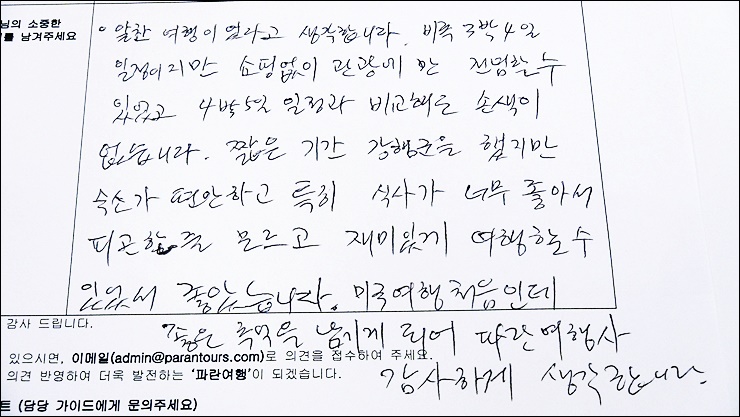 님의 소중한
를 남겨주세요
• 알찬 여행이 였다고 생각합니다. 비록 3박4일
일정이지만 쇼핑없이 관광에만 전념할 수
있었고 4박5일 일정과 비교해도 손색이
없습니다. 짧은 기간 강행군을 했지만
숙소가 편안하고 특히 식사가 너무 좋아서
피곤한 줄 모르고 재미있게 여행할 수
있어서 좋았습니다. 미국여행 처음인데
감사 드립니다.
좋은 추억을 남기게 되어 파란여행사
있으시면, 이메일(admin@parantours.com)로 의견을 접수하여 주세요.
의견 반영하여 더욱 발전하는 '파란여행'이 되겠습니다.
감사하게 생각합니다.
트 (담당 가이드에게 문의주세요)